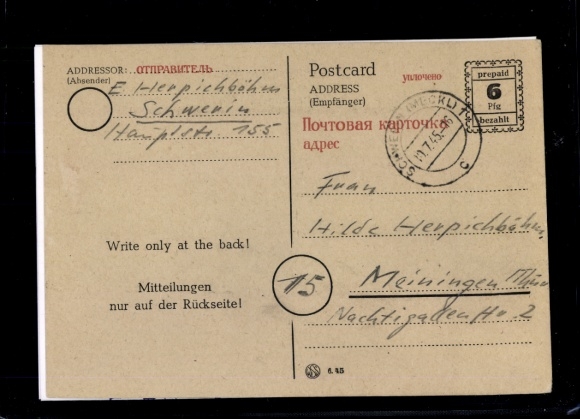 ADDRESSOR: ОТПРАВИТЕЛЬ
(Absender)
E Herpichböhm
Schwerin
155
Write only at the back!
Mitteilungen
nur auf der Rückseite!
Postcard
уплочено
ADDRESS
(Empfänger)
Почтовая карточка
адрес
prepaid
6
Pfg
bezahlt
SCHWERIN (MECKL) 1
c
Frau
Hilde Herpichböhm
15
Meiningen Thür
Nachtigallenstr. 2
6.45